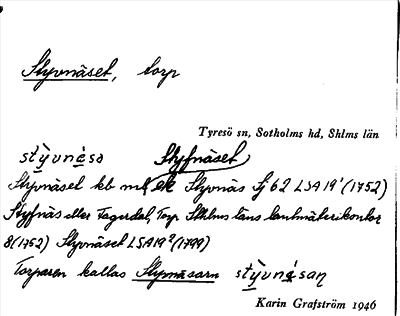 Styvnäset, torp
Tyresö sn, Sotholms hd, Shlms län
stỳvnésə Styfnäset
Styvnäset kb mt, ek Styvnäs Sj 62 LSA 19¹ (1752)
Styfnäs eller Fagerdal, Torp Sthlms läns lantmäterikontor
8 (1762) Styvnäset LSA 19² (1799)
Torparen kallas Styvnäsarn stỳvnésaɳ
Karin Grafström 1946